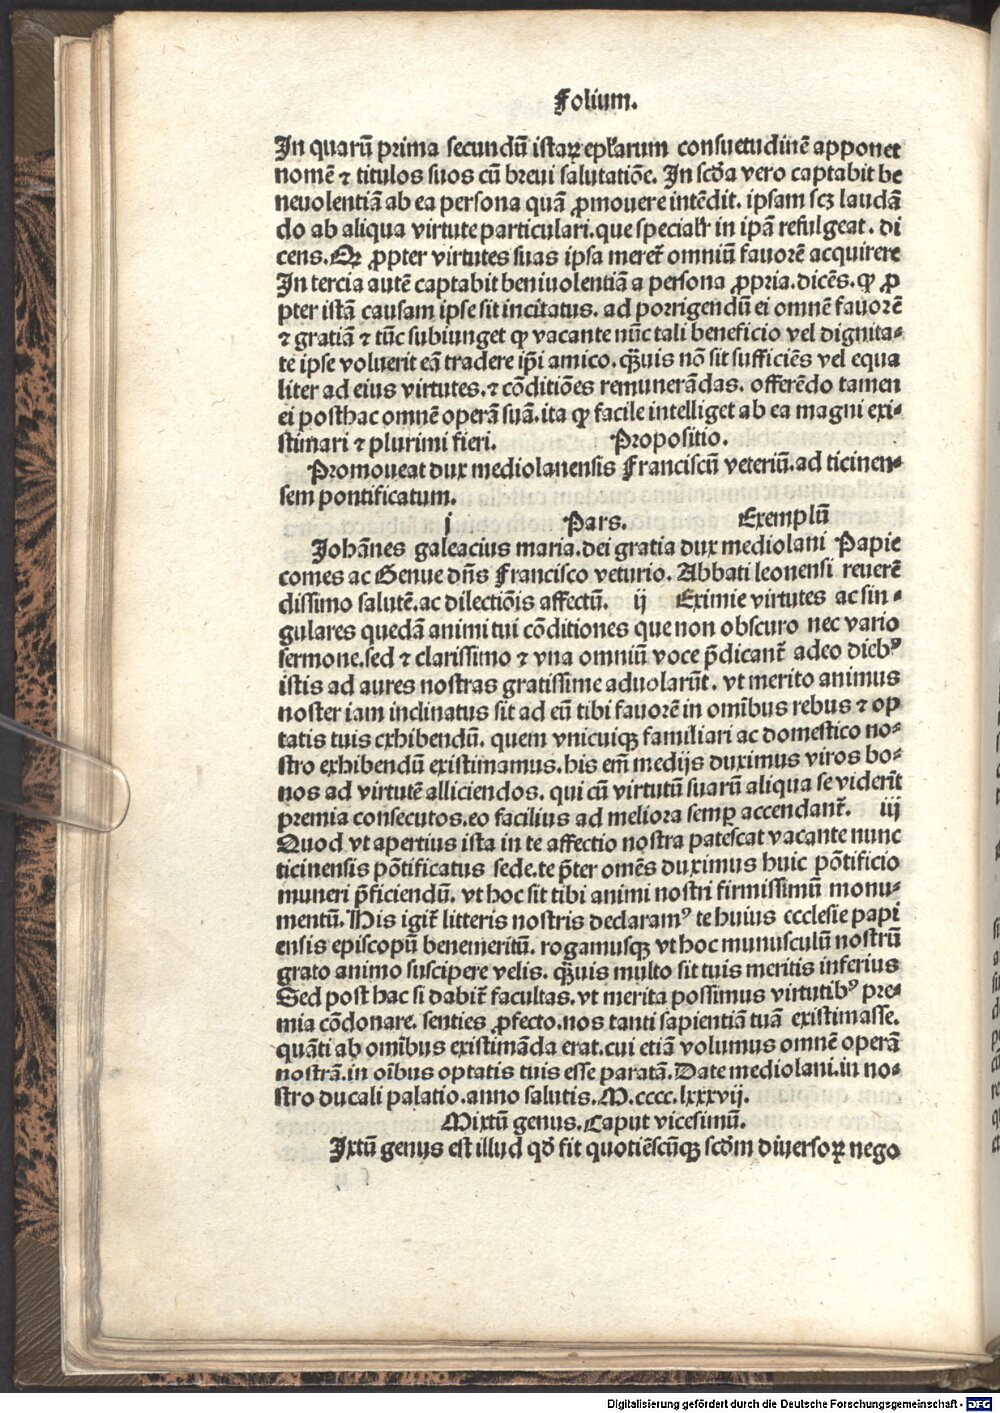 Folium.
In quarũ prima secundũ istaꝝ epl̃arum consuetudinẽ apponet
nomẽ ⁊ titulos suos cũ breui salutatiõe. In scd̃a vero captabit be
neuolentiã ab ea persona quã ꝓmouere intẽdit. ipsam scꝫ laudã
do ab aliqua virtute particulari. que specialr̃ in ipã refulgeat. di
cens. Qꝫ ꝓpter virtutes suas ipsa meret̃ omniũ fauorẽ acquirere
In tercia autẽ captabit beniuolentiã a persona ꝓpria. dicẽs. ꝙ ꝓ
pter istã causam ipse sit incitatus. ad porrigendũ ei omnẽ fauorẽ
⁊ gratiã ⁊ tũc subiunget ꝙ vacante nũc tali beneficio vel dignita-
te ipse voluerit eã tradere ip̃i amico. qᷓuis nõ sit sufficiẽs vel equa
liter ad eius virtutes. ⁊ cõditiões remunerãdas. offerẽdo tamen
ei posthac omnẽ operã suã. ita ꝙ facile intelliget ab ea magni exi-
stimari ⁊ plurimi fieri. Propositio.
Promoueat dux mediolanensis Franciscũ veteriũ. ad ticinen-
sem pontificatum.
j Pars. Exemplũ
Johãnes galeacius maria. dei gratia dux mediolani Papie
comes ac Genue dñs Francisco veturio. Abbati leonensi reuerẽ
dissimo salutẽ. ac dilectiõis affectũ. ij Eximie virtutes ac sin-
gulares quedã animi tui cõditiones que non obscuro nec vario
sermone. sed ⁊ clarissimo ⁊ vna omniũ voce p̃dicant̃ adeo diebꝰ
istis ad aures nostras gratissime aduolarũt. vt merito animus
noster iam inclinatus sit ad eũ tibi fauorẽ in omĩbus rebus ⁊ op
tatis tuis exhibendũ. quem vnicuiqꝫ familiari ac domestico no-
stro exhibendũ existimamus. his em̃ medijs duximus viros bo-
nos ad virtutẽ alliciendos. qui cũ virtutũ suarũ aliqua se viderĩt
premia consecutos. eo facilius ad meliora semꝑ accendant̃. iij
Quod vt apertius ista in te affectio nostra patescat vacante nunc
ticinensis põtificatus sede. te p̃ter omẽs duximus huic põtificio
muneri p̃ficiendũ. vt hoc sit tibi animi nostri firmissimũ monu-
mentũ. His igit̃ litteris nostris declaramꝰ te huius ecclesie papi
ensis episcopũ benemeritũ. rogamusqꝫ vt hoc munusculũ nostrũ
grato animo suscipere velis. qᷓuis multo sit tuis meritis inferius
Sed post hac si dabit̃ facultas. vt merita possimus virtutibꝰ pre-
mia cõdonare. senties ꝓfecto. nos tanti sapientiã tuã existimasse.
quãti ab omĩbus existimãda erat. cui etiã volumus omnẽ operã
nostrã. in oĩbus optatis tuis esse paratã. Date mediolani. in no-
stro ducali palatio. anno salutis. M. cccc. lxxxvij.
Mixtũ genus. Caput vicesimũ.
Ixtũ genus est illud qđ fit quotiẽscũqꝫ scd̃m diuersoꝝ nego